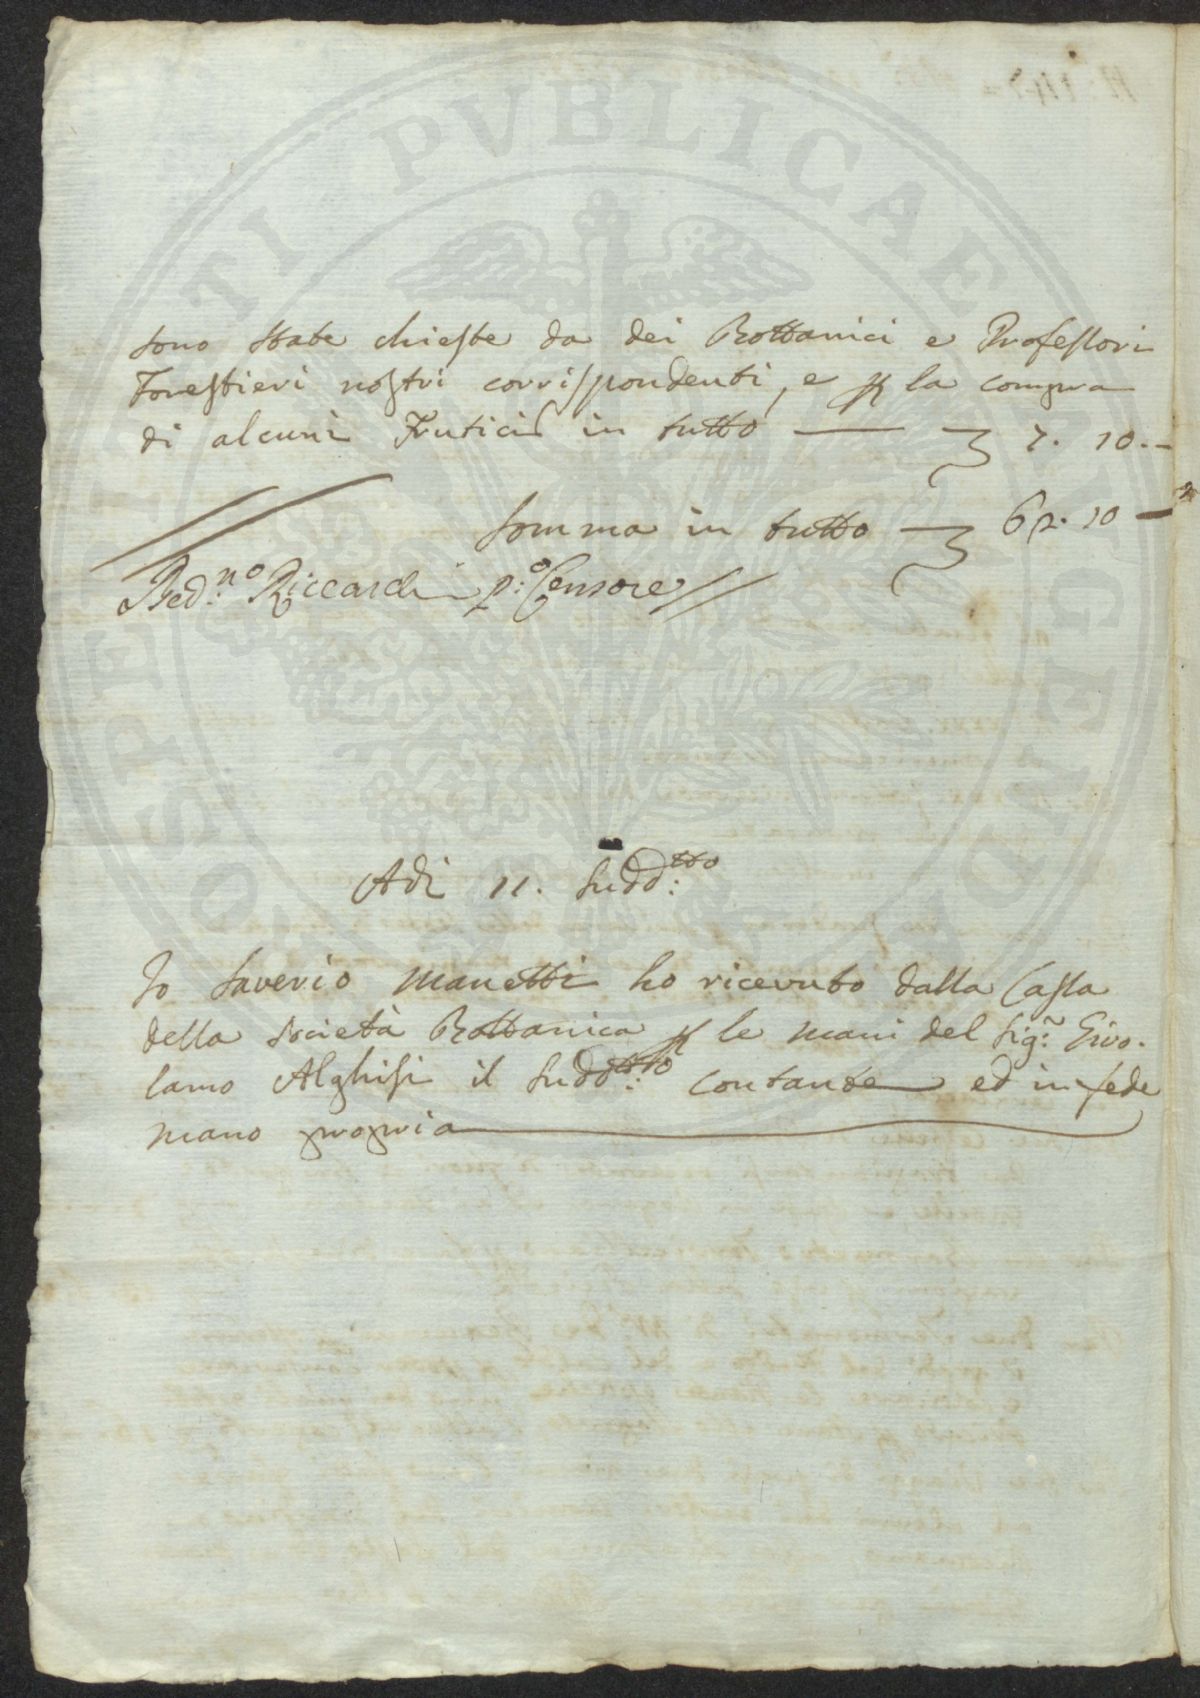 PROSPERITATI PVBLICAE AVGENDAE
sono state chieste da dei Bottanici e Professori
Forestieri nostri corrispondenti, e p la compra
di alcuni Frutici in tutto — 7. 10. -
Somma in tutto — 62. 10 —
Bed:no Riccardi p:o Censore //
Adi 11. Sudd:tto
Io Saverio Manetti ho ricevuto dalla Cassa
della Società Bottanica p le mani del Sig:r Giro-
lamo Alghisi il Sudd:tto contante ed in fede
mano propria